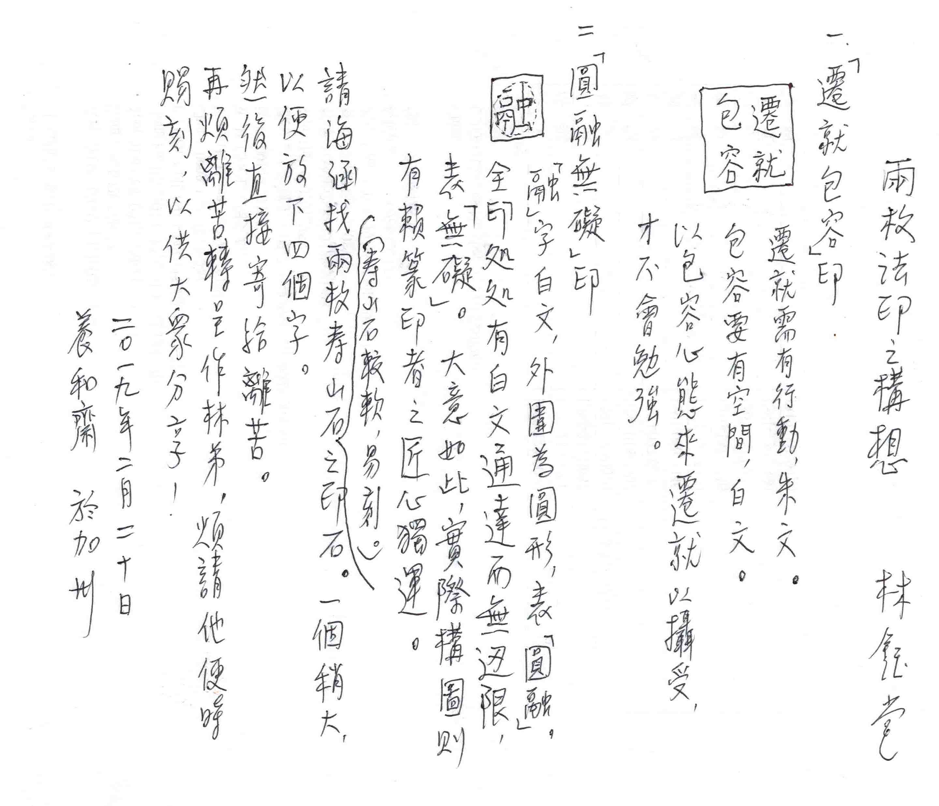 兩枚法印之構想 林鈺堂
一、「遷就包容」印
遷就
包容
遷就需有行動,朱文。
包容要有空間,白文。
以包容心態來遷就以攝受,
才不會勉強。
二「圓融無礙」印
「融」字白文,外圍為圓形,表「圓融」。
全印处处有白文通達而無边限,
表「無礙」。大意如此,實際構圖則
有賴篆印者之匠心獨運。
(寿山石較軟,易刻。)
請海涵找兩枚寿山石之印石。一個稍大,
以便放下四個字。
然後直接寄給離苦。
再煩離苦轉呈作林弟,煩請他便時
賜刻,以供大眾分享!
二〇一九年二月二十日
養和齋 於加州